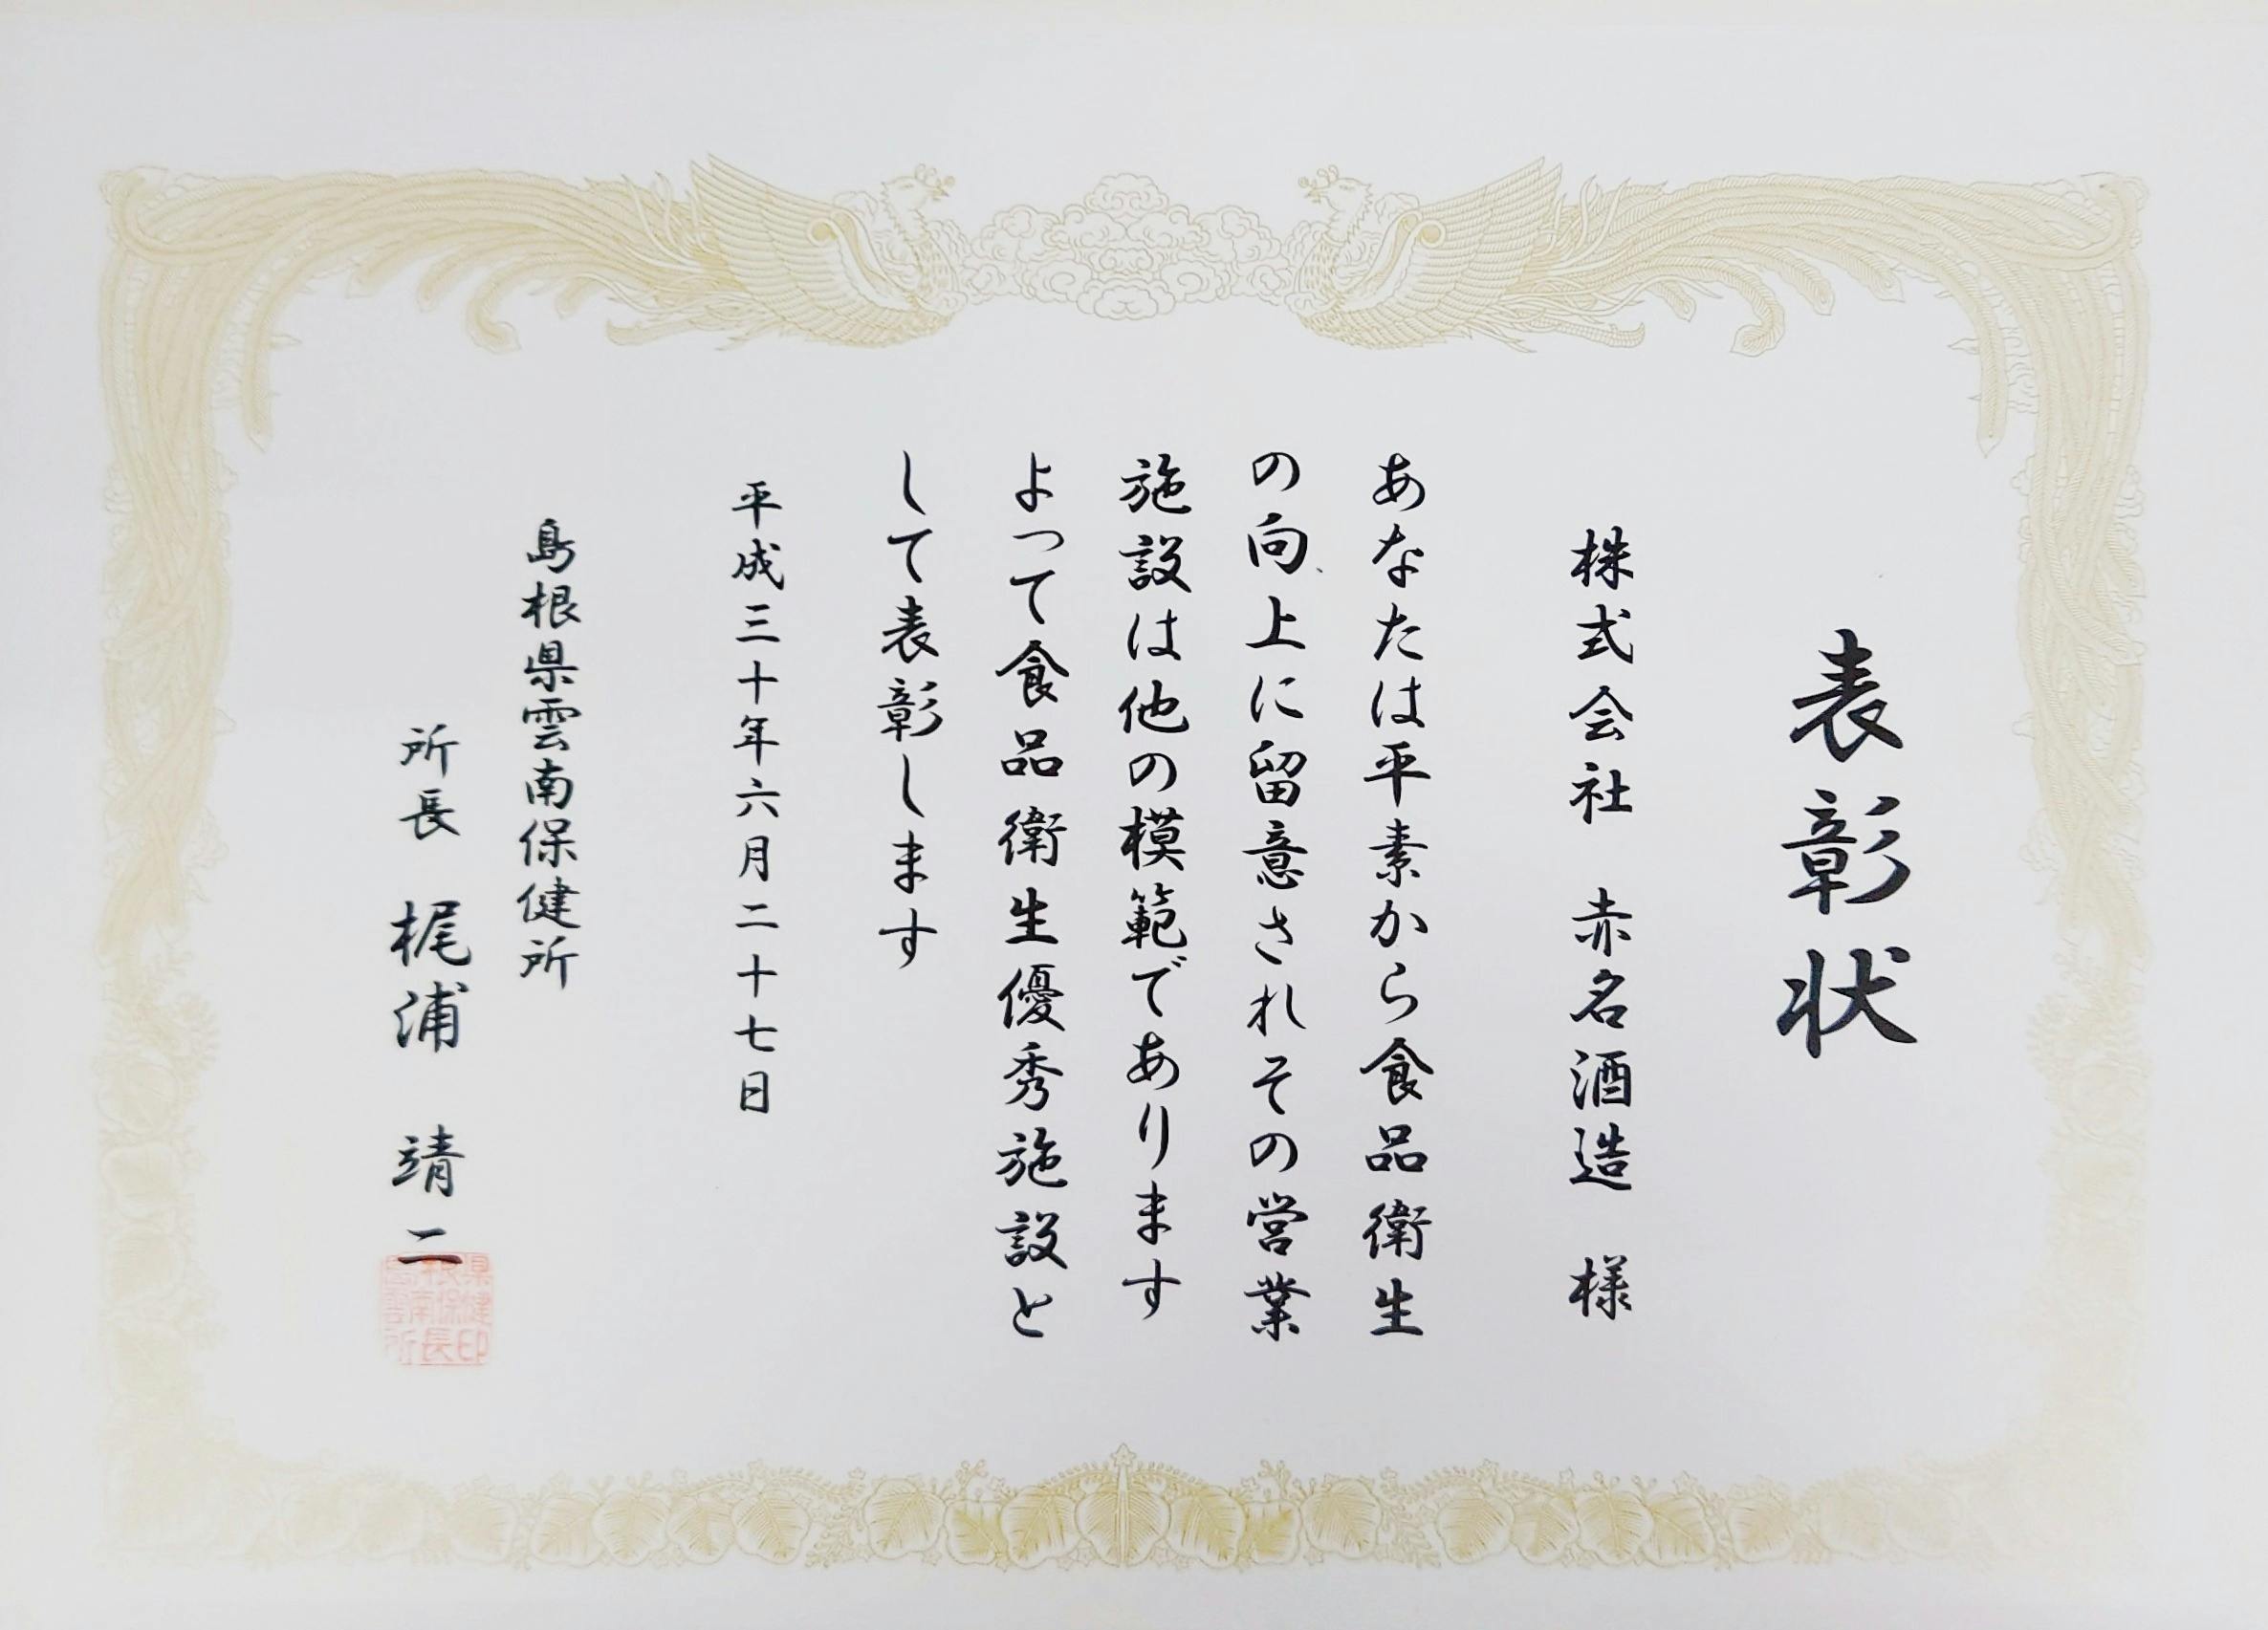 表彰状
株式会社 赤名酒造 様
あなたは平素から食品衛生
の向上に留意されその営業
施設は他の模範であります
よって食品衛生優秀施設と
して表彰します
平成三十年六月二十七日
島根県雲南保健所
所長 梶浦 靖二
島根県雲南保健所長印